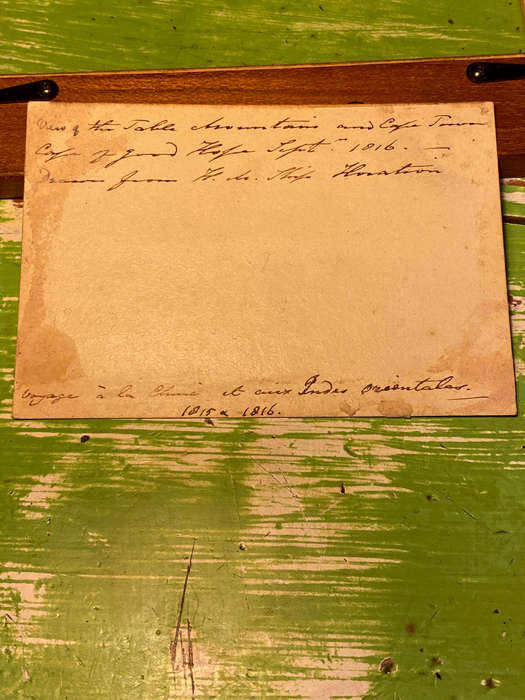 View of the Table Mountain and Cape Town
Cape of Good Hope Septr. 1816. —
Drawn from H. M. Ship Horatio
Voyage à la Chine et aux Indes orientales.
1815 & 1816.